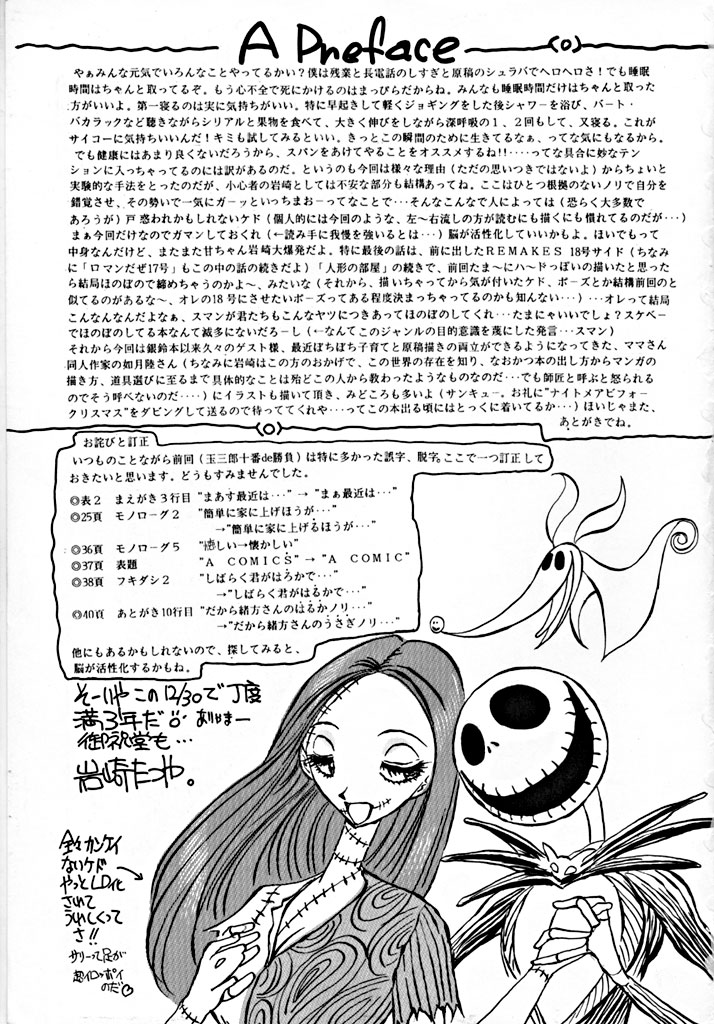 A Preface
やぁみんな元気でいろんなことやってるかい？僕は残業と長電話のしすぎと原稿のシュラバでヘロヘロさ！でも睡眠
時間はちゃんと取ってるぞ。もう心不全で死にかけるのはまっぴらだからね。みんなも睡眠時間だけはちゃんと取った
方がいいよ。第一寝るのは実に気持ちがいい。特に早起きして軽くジョギングをした後シャワーを浴び、バート・
バカラックなど聴きながらシリアルと果物を食べて、大きく伸びをしながら深呼吸の１、２回もして、又寝る。これが
サイコーに気持ちいいんだ！キミも試してみるといい。きっとこの瞬間のために生きてるなぁ、ってな気にもなるから。
でも健康にはあまり良くないだろうから、スパンをあけてやることをオススメするね!!････ってな具合に妙なテン
ションに入っちゃってるのには訳があるのだ。というのも今回は様々な理由（ただの思いつきではないよ）からちょいと
実験的な手法をとったのだが、小心者の岩崎としては不安な部分も結構あってね。ここはひとつ根拠のないノリで自分を
錯覚させ、その勢いで一気にガーッといっちまおーってなことで･･･そんなこんなで人によっては（恐らく大多数で
あろうが）戸惑われるかもしれないケド（個人的には今回のような、左～右流しの方が読むにも描くにも慣れてるのだが･･･）
まぁ今回だけなのでガマンしておくれ（←読み手に我慢を強いるとは･･･）脳が活性化していいかもよ。ほいでもって
中身なんだけど、またまた甘ちゃん岩崎大爆発だよ。特に最後の話は、前に出したＲＥＭＡＫＥＳ 18号サイド（ちなみ
に「ロマンだぜ17号」もこの中の話の続きだよ）「人形の部屋」の続きで、前回たま～にハ～ドっぽいの描いたと思った
ら結局ほのぼので締めちゃうのかよ～、みたいな（それから、描いちゃってから気が付いたケド、ボーズとか結構前回のと
似てるのがあるな～、オレの18号にさせたいボーズってある程度決まっちゃってるのかも知んない･･･）･･･オレって結局
こんなんなんだよなぁ、スマンが君たちもこんなヤツにつきあってほのぼのしてくれ･･･たまにゃいいでしょ？スケベー
でほのぼのしてる本なんて滅多にないだろーし（←なんてこのジャンルの目的意識を蔑にした発言･･･スマン）
それから今回は銀鈴本以来久々のゲスト様、最近ぼちぼち子育てと原稿描きの両立ができるようになってきた、ママさん
同人作家の如月陸さん（ちなみに岩崎はこの方のおかげで、この世界の存在を知り、なおかつ本の出し方からマンガの
描き方、道具選びに至るまで具体的なことは殆どこの人から教わったようなものなのだ･･･でも師匠と呼ぶと怒られる
のでそう呼べないのだ････）にイラストも描いて頂き、みどころも多いよ（サンキュー。お礼に"ナイトメアビフォー
クリスマス"をダビングして送るので待っててくれや･･･ってこの本出る頃にはとっくに着いてるか･･･）ほいじゃまた、
あとがきでね。
お詫びと訂正
いつものことながら前回（玉三郎十番de勝負）は特に多かった誤字、脱字、ここで一つ訂正して
おきたいと思います。どうもすみませんでした。
◎表２　まえがき３行目 "まあす最近は･･･" → "まぁ最近は･･･"
◎25頁　モノローグ２　"簡単に家に上げほうが･･･"
→"簡単に家に上げるほうが･･･"
◎36頁　モノローグ５　しい→懐かしい"
◎37頁　表題　"Ａ ＣＯＭＩＣＳ" → "Ａ ＣＯＭＩＣ"
◎38頁　フキダシ２　"しばらく君がはろかで･･･"
→"しばらく君がはるかで･･･"
◎40頁　あとがき10行目 "だから緒方さんのはるかノリ･･･"
→"だから緒方さんのうさぎノリ･･･"
他にもあるかもしれないので、探してみると、
脳が活性化するかもね。
そーいや この12/30で丁度
満3年だ
御祝堂も…
岩崎たつや。
全々カンケイ
ないケド
やっとLD化
されて
うれしくって
さ!!
サリーって足が
超イロッポイ
のだ♡